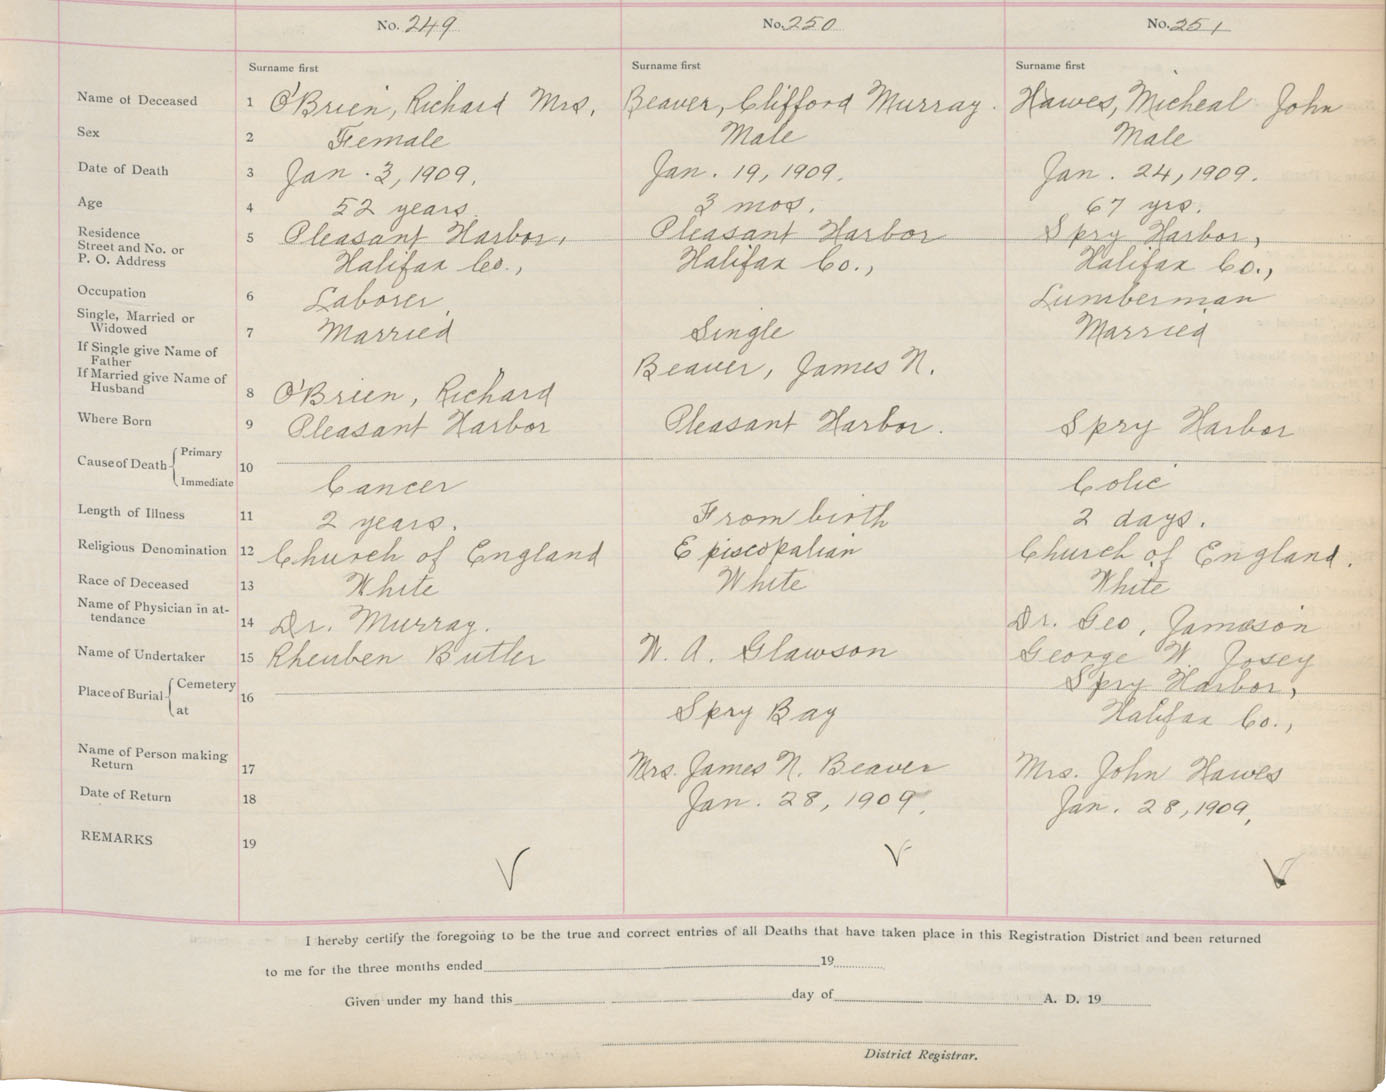 No. 249 No. 250 No. 251
Surname first Surname first Surname first
Name of Deceased 1 O'Brien, Richard Mrs. Beaver, Clifford Murray. Hawes, Micheal John
Sex 2 Female Male Male
Date of Death 3 Jan. 3, 1909. Jan. 19, 1909. Jan. 24, 1909.
Age 4 52 years. 3 mos. 67 yrs.
Residence
Street and No. or 5 Pleasant Harbor, Pleasant Harbor Spry Harbor,
P. O. Address Halifax Co., Halifax Co., Halifax Co.,
Occupation 6 Laborer, Lumberman
Single, Married or
Widowed 7 Married Single Married
If Single give Name of
Father Beaver, James N.
If Married give Name of
Husband 8 O'Brien, Richard
Where Born 9 Pleasant Harbor Pleasant Harbor. Spry Harbor
Cause of Death Primary
10
Immediate Cancer Colic
Length of Illness 11 2 years. From birth 2 days.
Religious Denomination 12 Church of England Episcopalian Church of England.
Race of Deceased 13 White White White
Name of Physician in at-
tendance 14 Dr. Murray. Dr. Geo. Jamason
Name of Undertaker 15 Rheuben Butler W. A. Glawson George W. Josey
Place of Burial Cemetery 16 Spry Harbor,
at Spry Bay Halifax Co.,
Name of Person making
Return 17 Mrs. James N. Beaver Mrs. John Hawes
Date of Return 18 Jan. 28, 1909. Jan. 28, 1909.
REMARKS 19
I hereby certify the foregoing to be the true and correct entries of all Deaths that have taken place in this Registration District and been returned
to me for the three months ended 19
Given under my hand this day of A. D. 19
District Registrar.